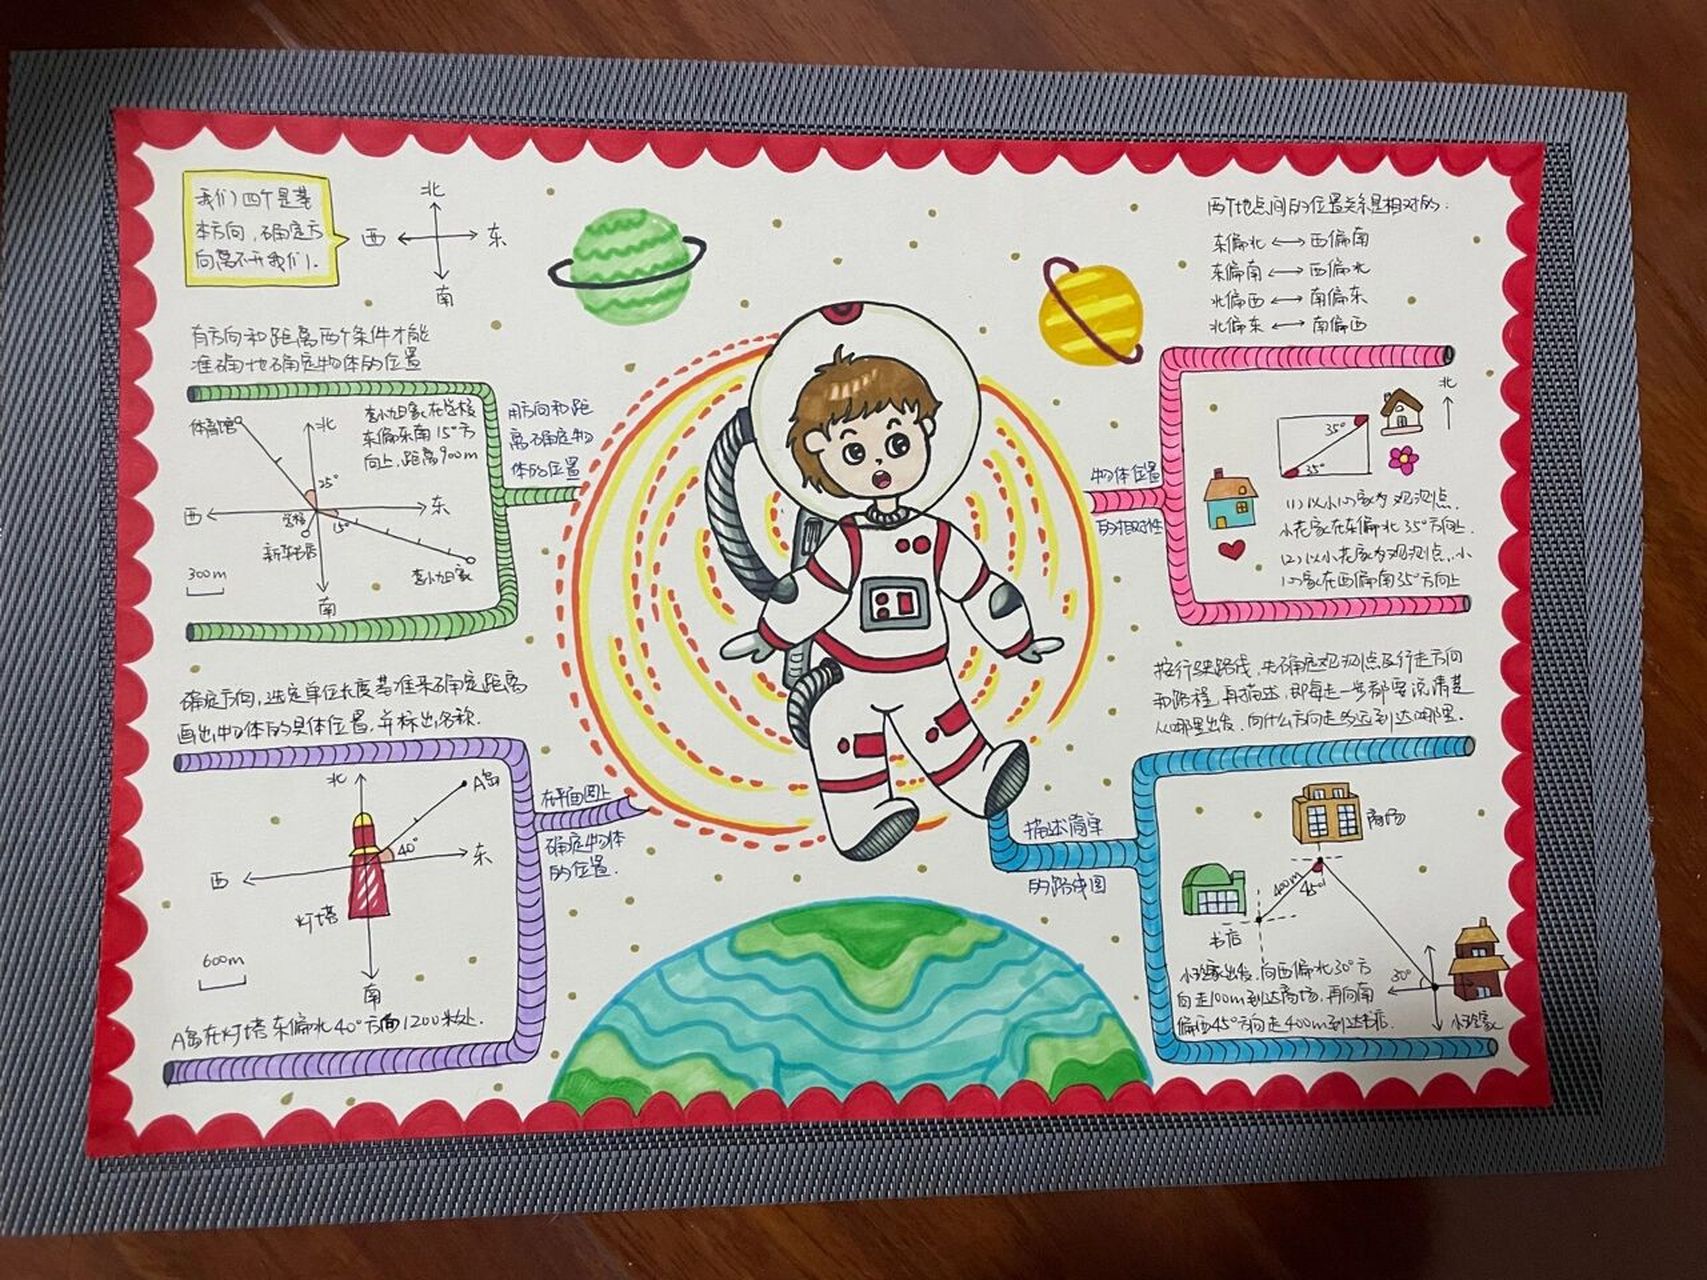 我们四个是基
本方向,确定方
向离不开我们.
北
西
东
南
有方向和距离两个条件才能
准确地确定物体的位置
体育馆
北
李小旭家在学校
东偏东南15°方
向上,距离900m
25°
西
东
学校
15°
新华书店
李小旭家
300m
南
用方向和距
离确定物
体的位置
确定方向,选定单位长度基准来确定距离
画出物体的具体位置,并标出名称.
北
A岛
40°
东
西
灯塔
600m
南
A岛在灯塔东偏北40°方向1200米处.
在平面图上
确定物体
的位置.
两个地点间的位置关系是相对的.
东偏北 ⟷ 西偏南
东偏南 ⟷ 西偏北
北偏西 ⟷ 南偏东
北偏东 ⟷ 南偏西
物体位置
的相对性
北
35°
35°
(1)以小心家为观测点,
小花家在东偏北35°方向上.
(2)以小花家为观测点,小
心家在西偏南35°方向上
按行驶路线,先确定观测点及行走方向
和路程,再描述,即每走一步都要说清楚
从哪里出发,向什么方向走多远到达哪里.
描述简单
的路线图
商场
400m
45°
书店
30°
小玲家出发,向西偏北30°方
向走100m到达商场,再向南
偏西45°方向走400m到达书店.
小玲家